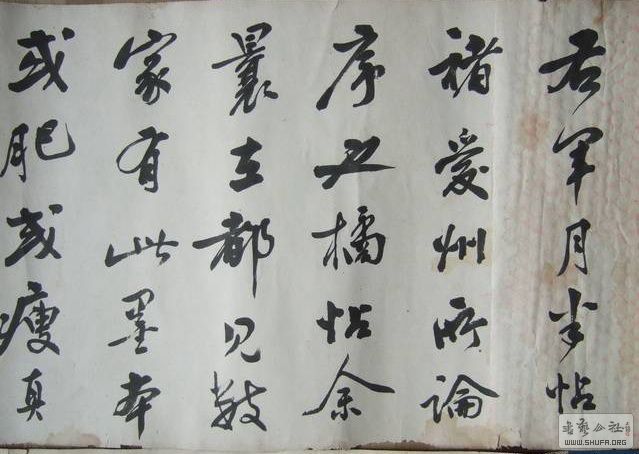 右軍月半帖
褚愛州所論
序又橘帖余
曩在都見數
家有此墨本
或肥或瘦真
书艺公社
WWW.SHUFA.ORG